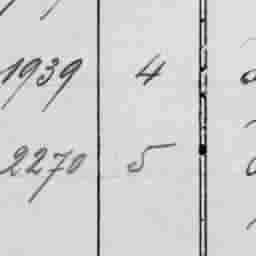 1939 4
2270 5